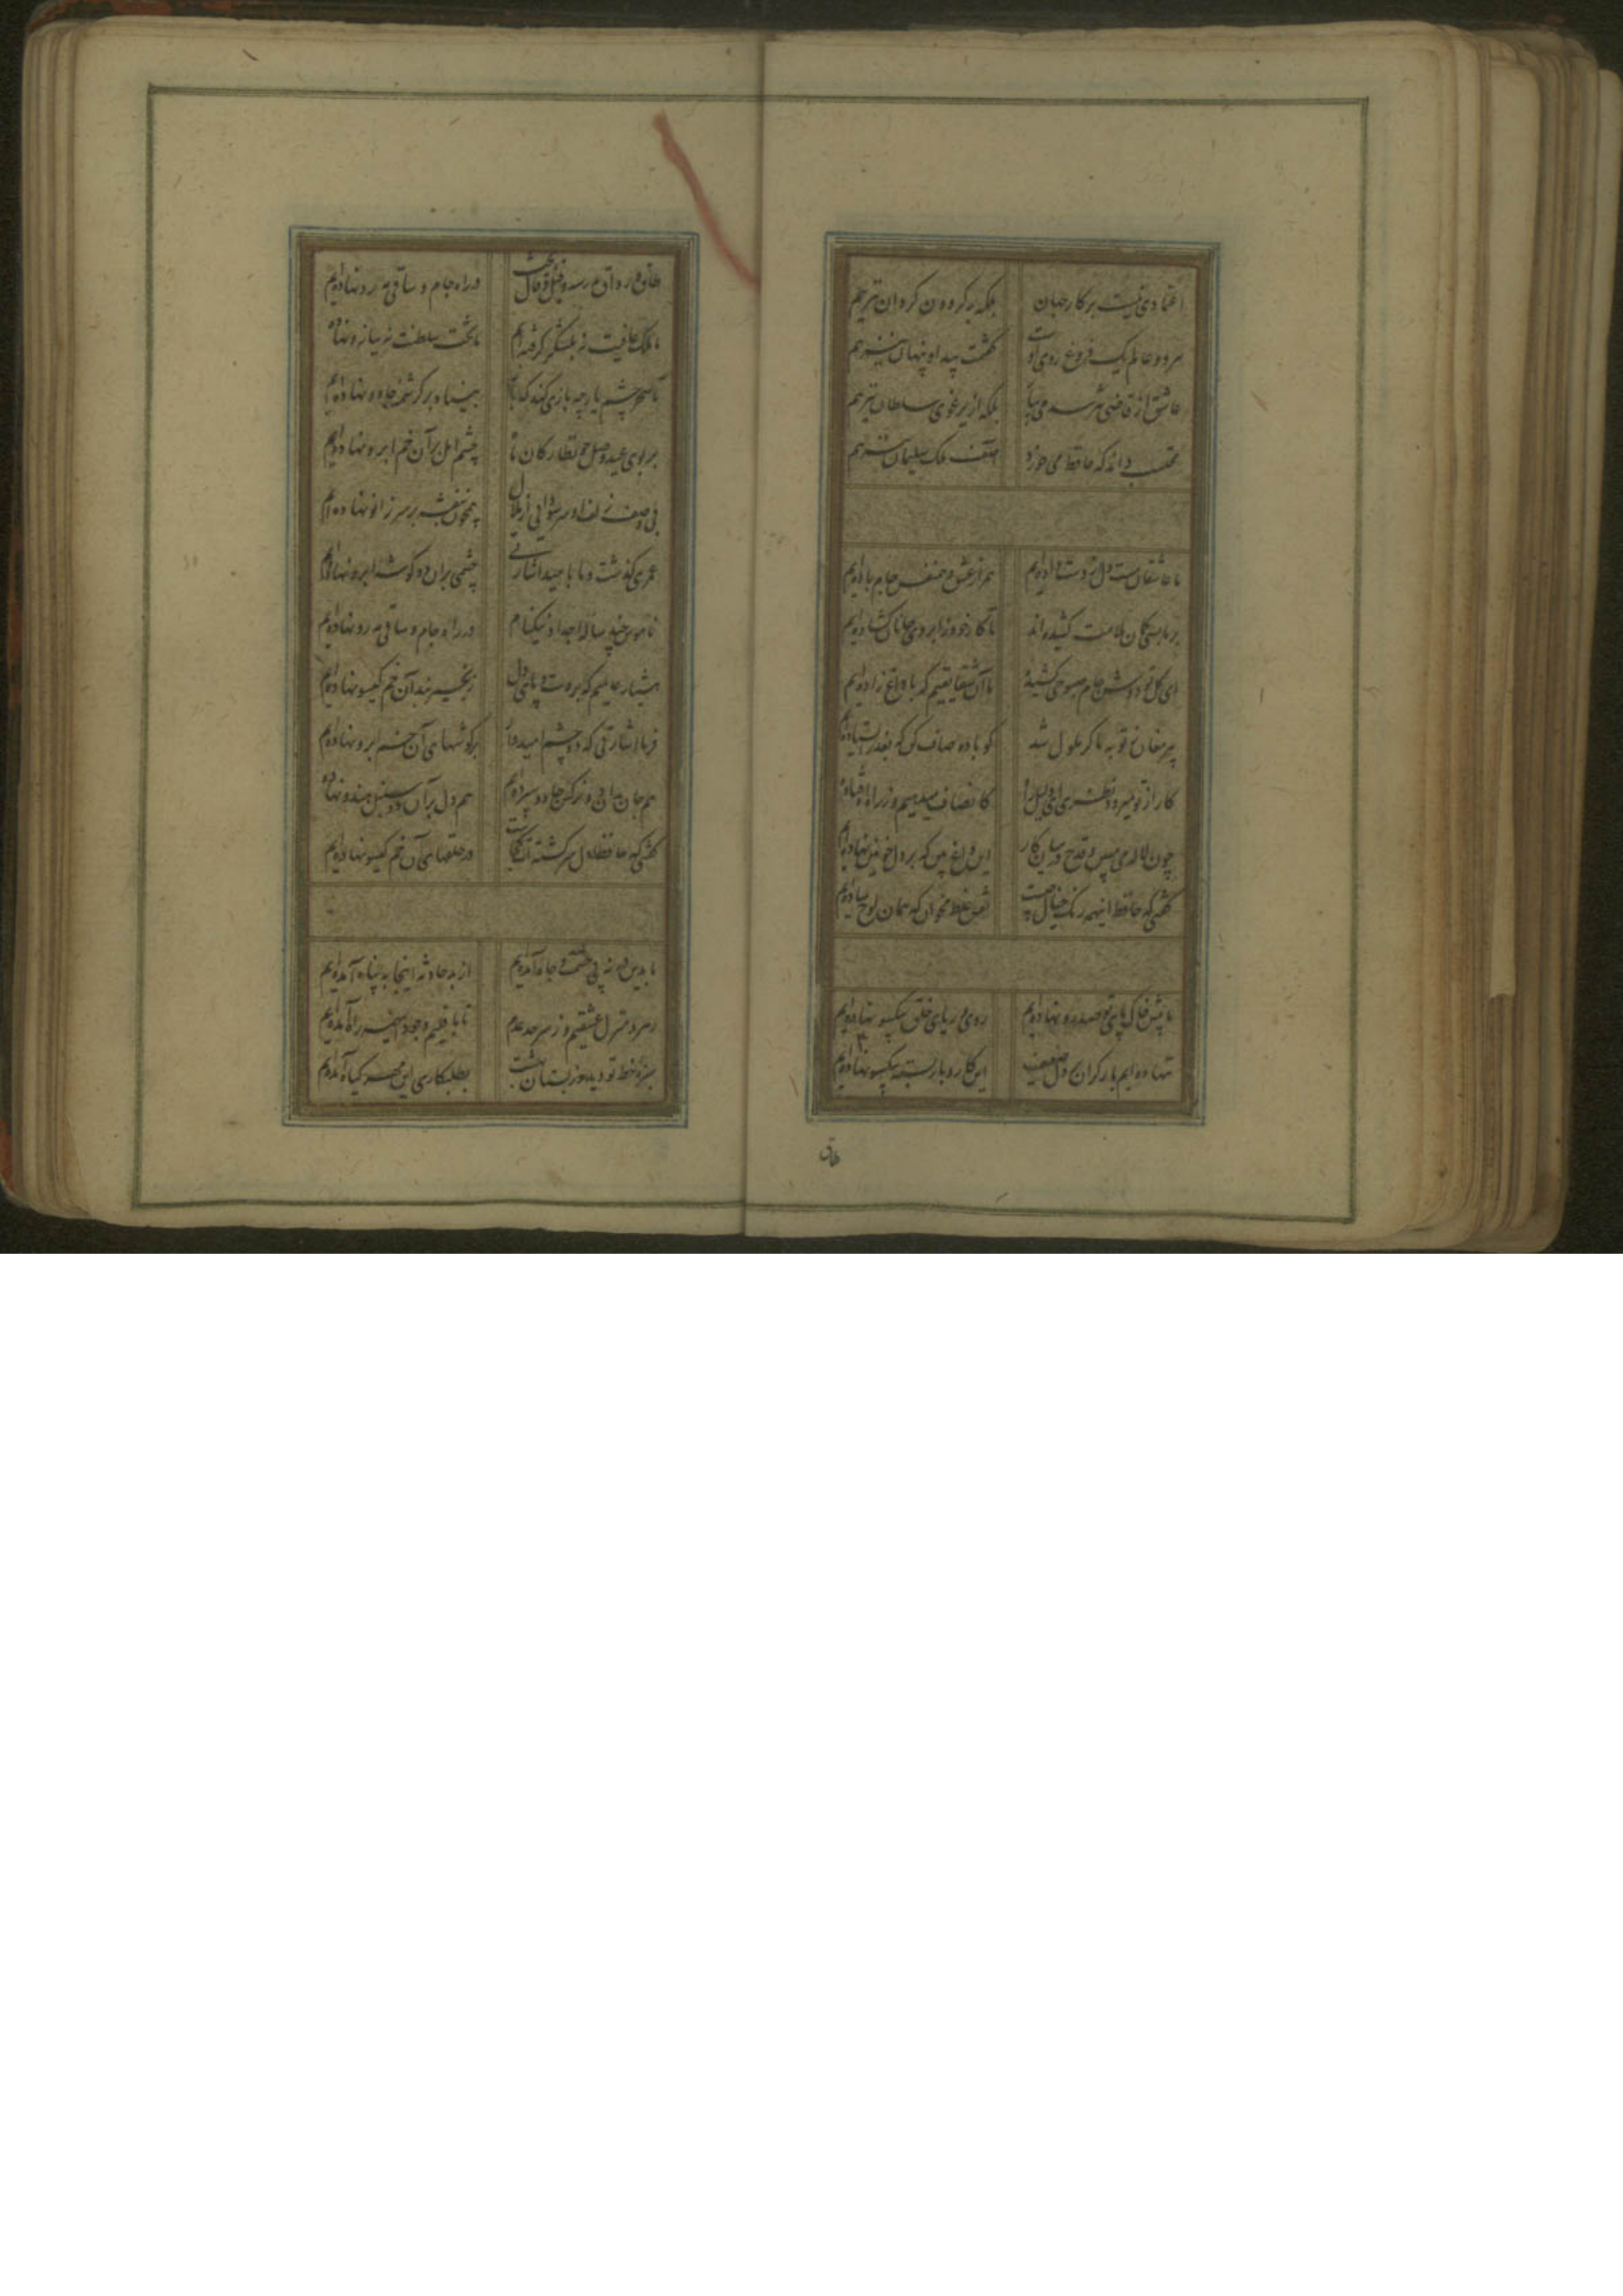 اعتمادی نیست بر کار جهان بلکه بر کردون کردان نیز هم
هر دو عالم یک فروغ روی اوست گفتمت پیدا و پنهان نیز هم
عاشق از قاضی نترسد می بیار بلکه از یرغوی سلطان نیز هم
محتسب داند که حافظ می خورد واصف ملک سلیمان نیز هم
ما عاشقان مست دل از دست داده‌ایم همراز عشق و همنفس جام باده‌ایم
بر ما بسی کمان ملامت کشیده‌اند تا کار خود ز ابروی جانان کشاده‌ایم
ای کل تو دوش جام صبوحی کشیدهٔ ما آن شقایقیم که با داغ زاده‌ایم
پیر مغان ز توبه ما کر ملول شد کو باده صاف کن که بعذر ایستاده‌ایم
کار از تو میرود نظری ای دلیل راه کانصاف میدهیم و ز راه اوفتاده‌ایم
چون لاله می مبین و قدح در میان کار این داغ بین که بر دل خونین نهاده‌ایم
گفتی که حافظ اینهمه رنک خیال چیست نقش غلط مخوان که همان لوح ساده‌ایم
ما پیش خاک پای تو صد رو نهاده‌ایم روی و ریای خلق بیکسو نهاده‌ایم
ننهاده‌ایم بار کران بر دل ضعیف این کار و بار بسته بیکسو نهاده‌ایم
طاق
طاق و رواق مدرسه و قیل و قال بحث در راه جام و ساقی مه رو نهاده‌ایم
ما ملک عافیت نه بلشکر کرفته‌ایم ما تخت سلطنت نه ببازو نهاده‌ایم
تا سحر چشم یار چه بازی کند که باز بنیاد بر کرشمه جادو نهاده‌ایم
بر بوی عید وصل چو نظارکان ما چشم امل بر آن خم ابرو نهاده‌ایم
بی وصف زلف او سر سودایی از ملال همچون بنفشه بر سر زانو نهاده‌ایم
عمری کذشت و ما بامید اشارتی چشمی بر آن دو کوشه ابرو نهاده‌ایم
ناموس چند ساله اجداد نیکنام در راه جام و ساقی مه رو نهاده‌ایم
هشیار عالمیم که بر دست و پای دل زنجیر بند آن خم کیسو نهاده‌ایم
فرما اشارتی که دو چشم امید ما بر کوشهای آن خم ابرو نهاده‌ایم
هم جان بدان دو نرکس جادو سپرده‌ایم هم دل بر آن دو سنبل هندو نهاده‌ایم
گفتی که حافظا دل سرکشته‌ات کجاست در حلقهای آن خم کیسو نهاده‌ایم
ما بدین در نه پی حشمت و جاه آمده‌ایم از بد حادثه اینجا به پناه آمده‌ایم
رهرو منزل عشقیم و ز سرحد عدم تا باقلیم وجود اینهمه راه آمده‌ایم
سبزه خط تو دیدیم و ز بستان بهشت بطلبکاری این مهر کیاه آمده‌ایم